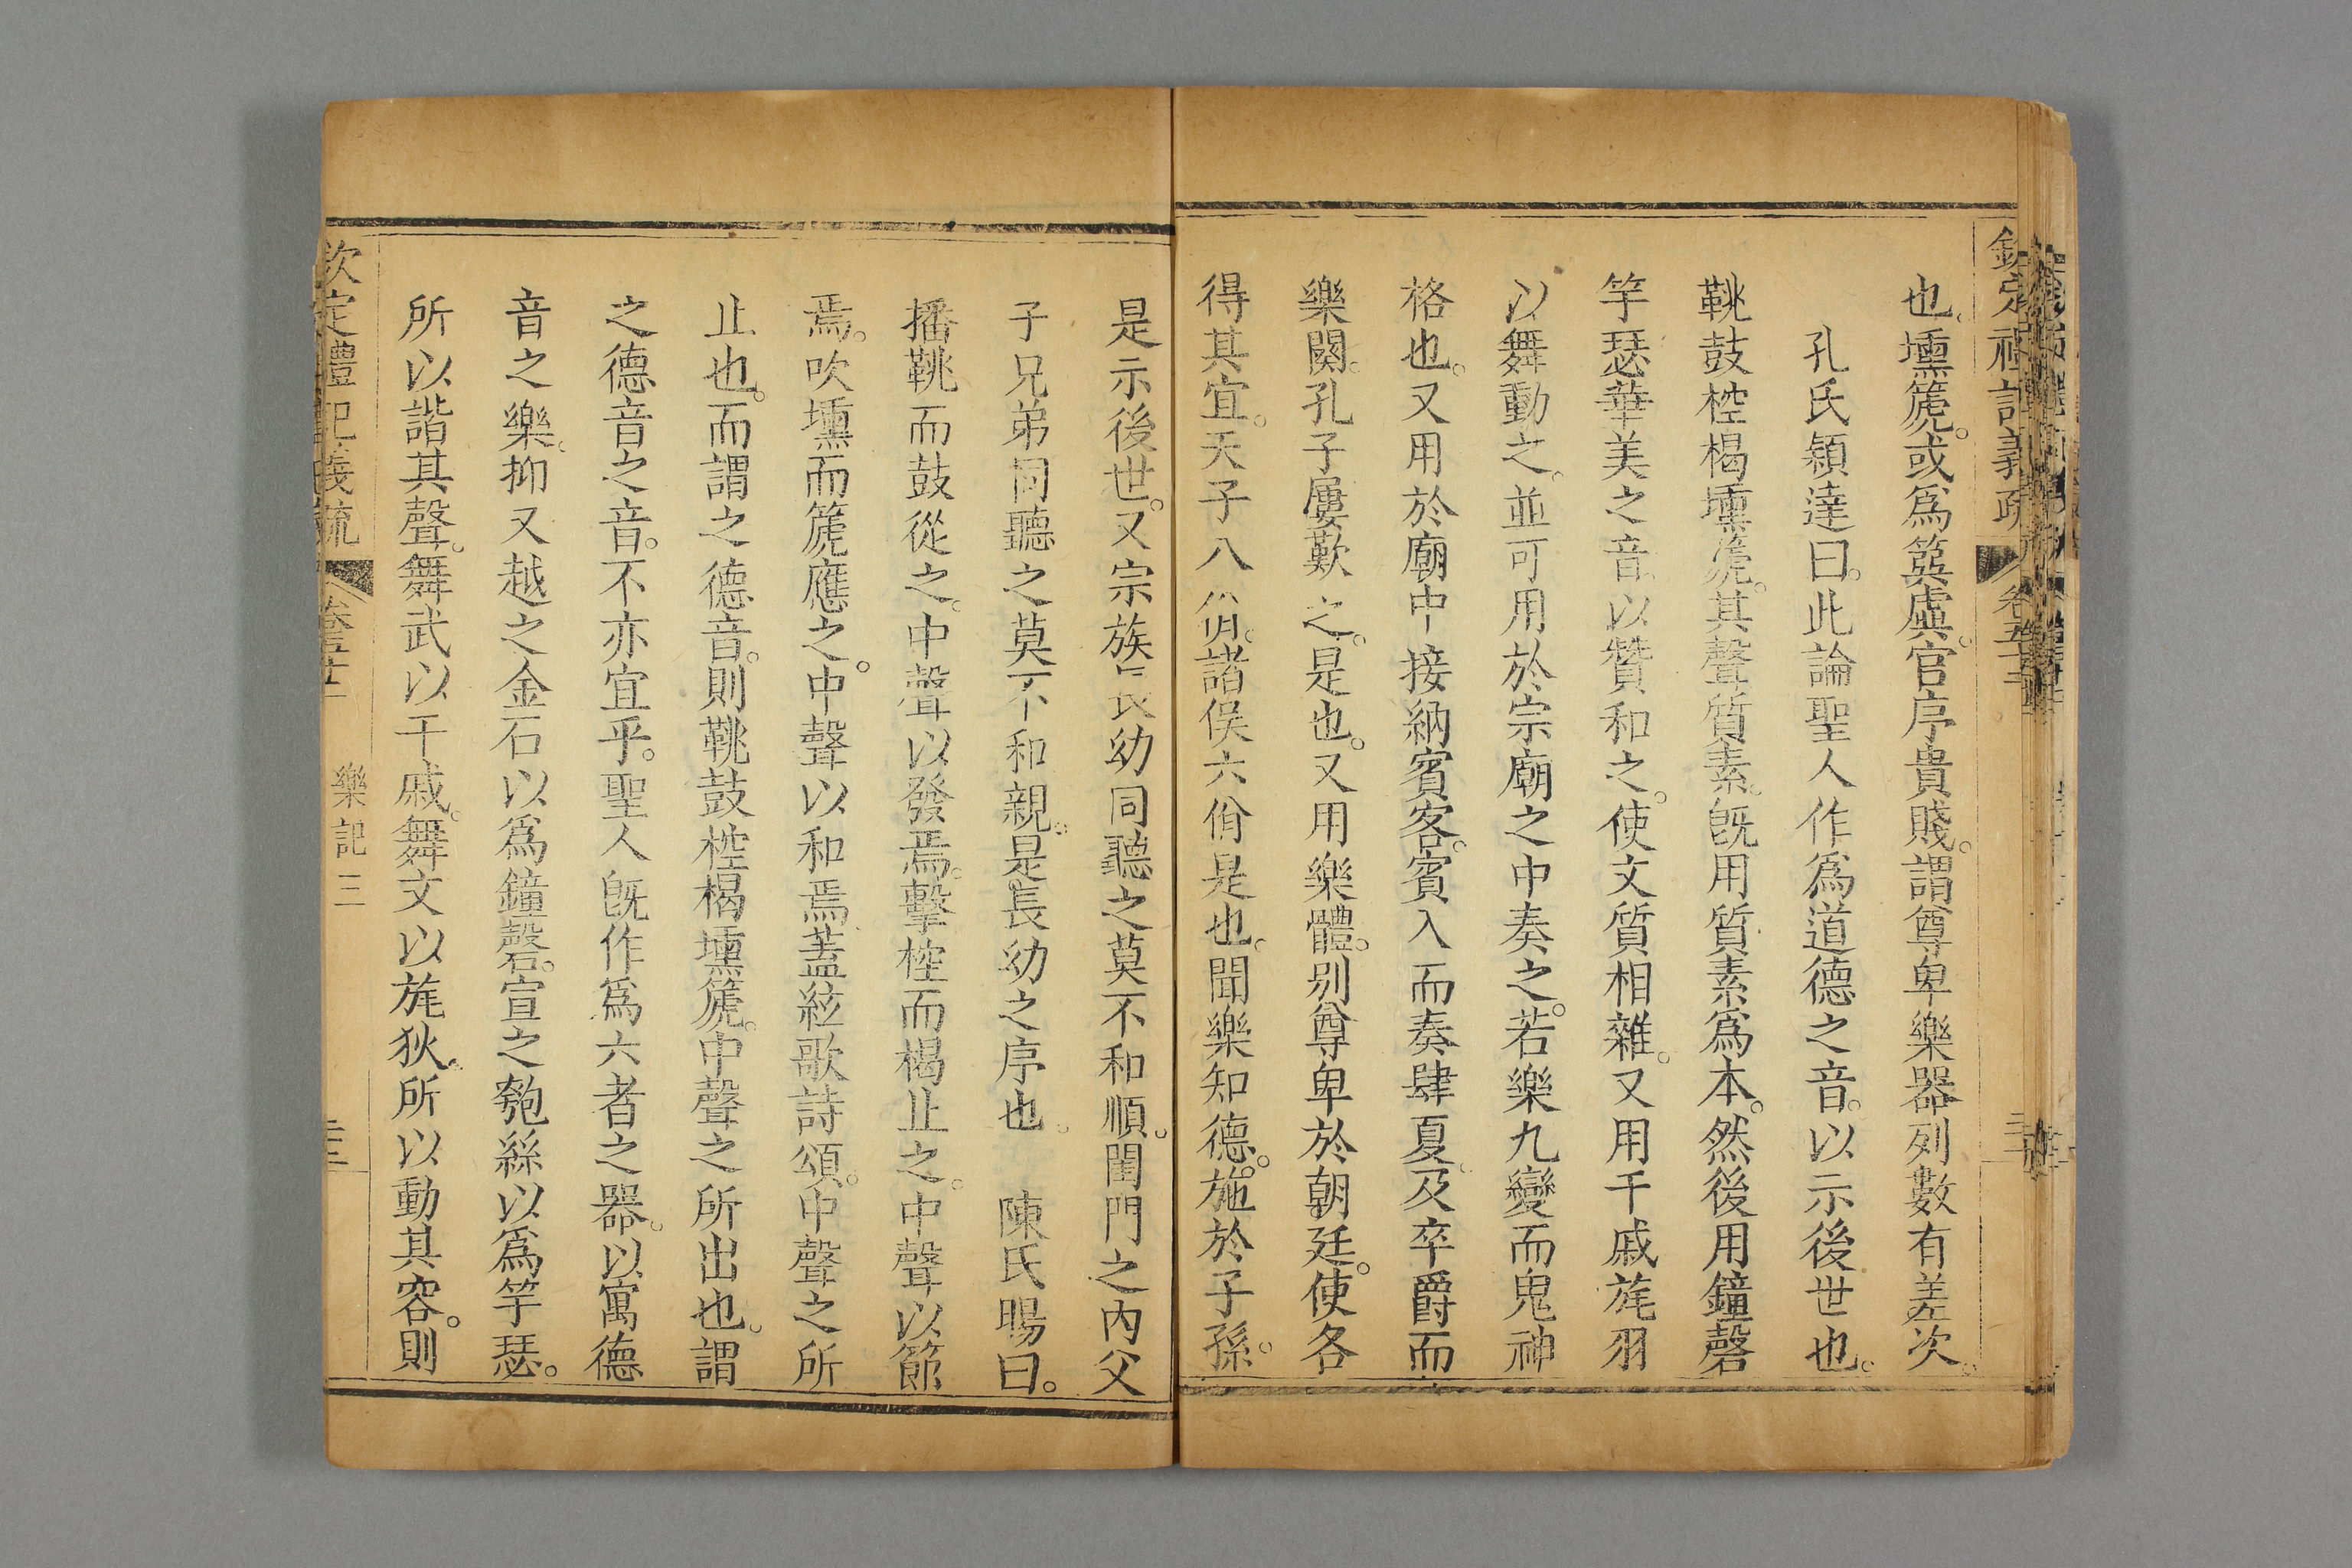 也。壎篪。或爲箕虡。官序貴賤。謂尊卑樂器列數有差次。
孔氏穎達曰。此論聖人作爲道德之音。以示後世也。
鞉鼓椌楬壎篪。其聲質素。旣用質素爲本。然後用鐘磬
竽瑟華美之音。以贊和之。使文質相雜。又用干戚旄羽
以舞動之。並可用於宗廟之中奏之。若樂九變而鬼神
格也。又用於廟中接納賓客。賓入而奏肆夏。及卒爵而
樂闋。孔子屢歎之。是也。又用樂體。別尊卑於朝廷。使各
得其宜。天子八佾。諸侯六佾是也。聞樂知德。施於子孫。
是示後世。又宗族長幼同聽之莫不和順。閨門之內父
子兄弟同聽之莫不和親。是長幼之序也。 陳氏暘曰。
播鞉而鼓從之。中聲以發焉。擊椌而楬止之。中聲以節
焉。吹壎而篪應之。中聲以和焉。蓋絃歌詩頌。中聲之所
止也。而謂之德音。則鞉鼓椌楬壎篪。中聲之所出也。謂
之德音之音。不亦宜乎。聖人旣作爲六者之器。以寓德
音之樂。抑又越之金石以爲鐘磬。宣之匏絲以爲竽瑟。
所以諧其聲。舞武以干戚。舞文以旄狄。所以動其容。則
欽定禮記義疏 樂記三